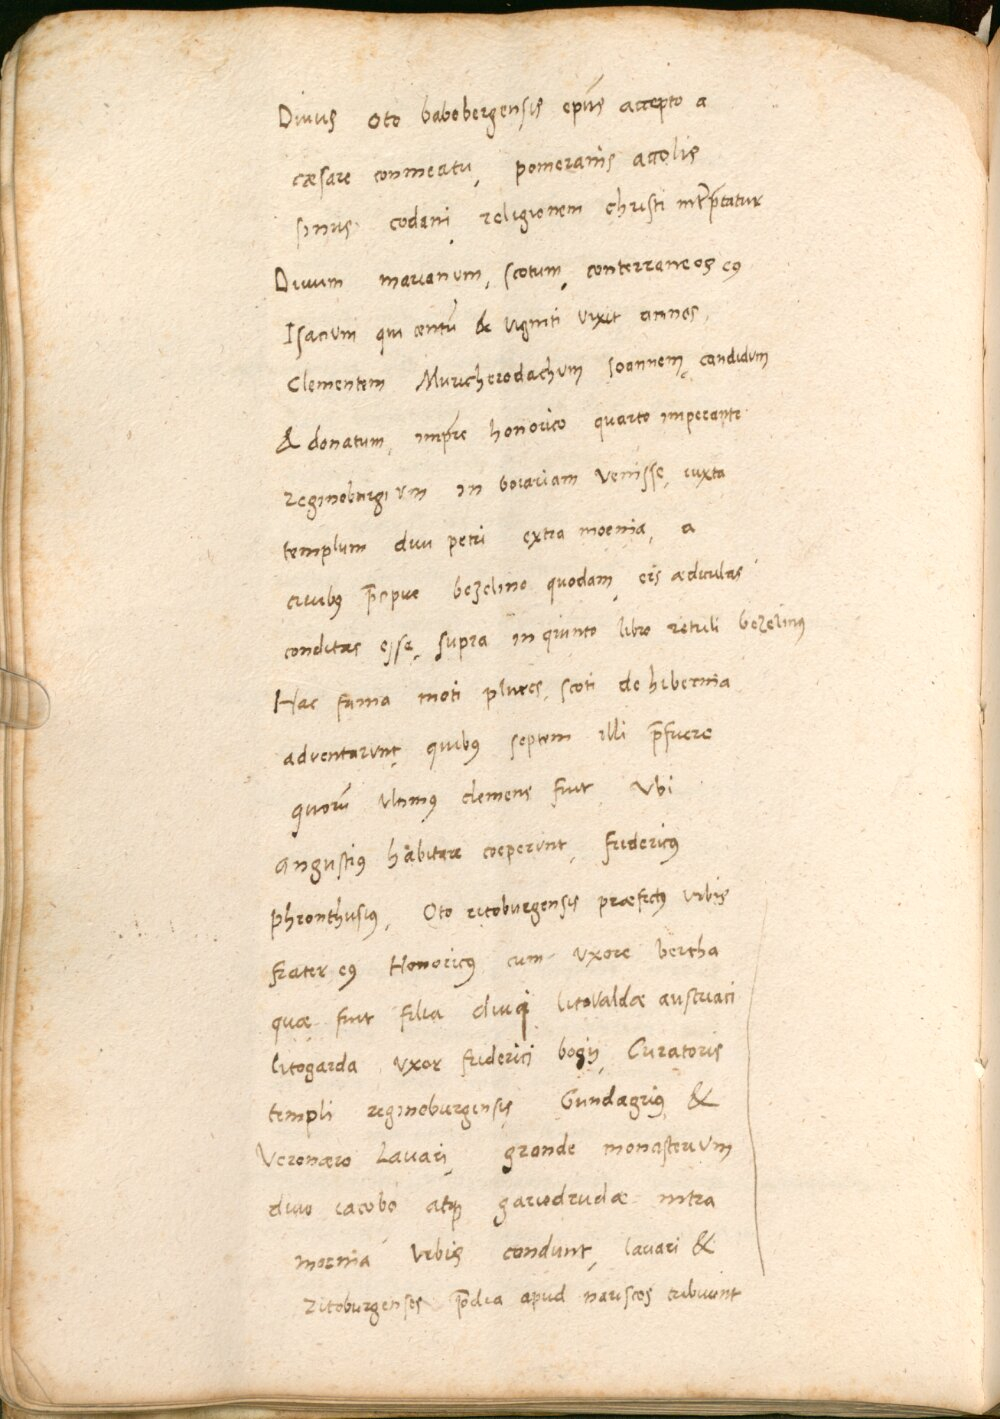 Divus Oto babebergensis ep̄us accepto a
cæsare conmeatu, pomeranis accolis
sinus codani religionem christi int̄rp̄tatur
Divum marianum, scotum, conterraneos eꝯ
Isacium qui centū & viginti vixit annos,
Clementem Muricherodachum Ioannem, candidum
& donatum, imp̄re honorico quarto imperante
reginoburgium in boiariam venisse, iuxta
templum divi petri extra moenia, a
civibꝯ p̄cipue bezelino quodam, eis ædiculas
conditas esse, supra in quinto libro retuli bezelinꝯ
Hac fama moti plures, scoti de hibernia
adventarunt, quibꝯ septem illi p̄fuere
quorū ultimꝯ clemens fuit, Vbi
angustiꝯ habitare coeperunt, fridericꝯ
phronthusiꝯ, Oto ritoburgensis præfectꝯ urbis
frater eꝯ Honoricꝯ cum uxore bertha
quæ fuit filia divi litovaldæ austriaci
litogarda uxor friderici bogij, Curatoris
templi reginoburgensis Gundagriꝯ &
Veronæro Lauari, grande monasterium
divo iacobo atqꝫ gariodrudæ intra
moenia urbis condunt, lauari &
ritoburgenses p̄dia apud nariscos tribuunt